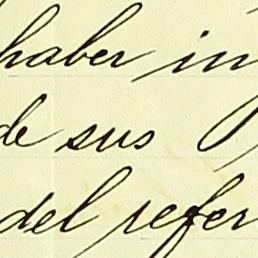 haber in
de sus
del refer